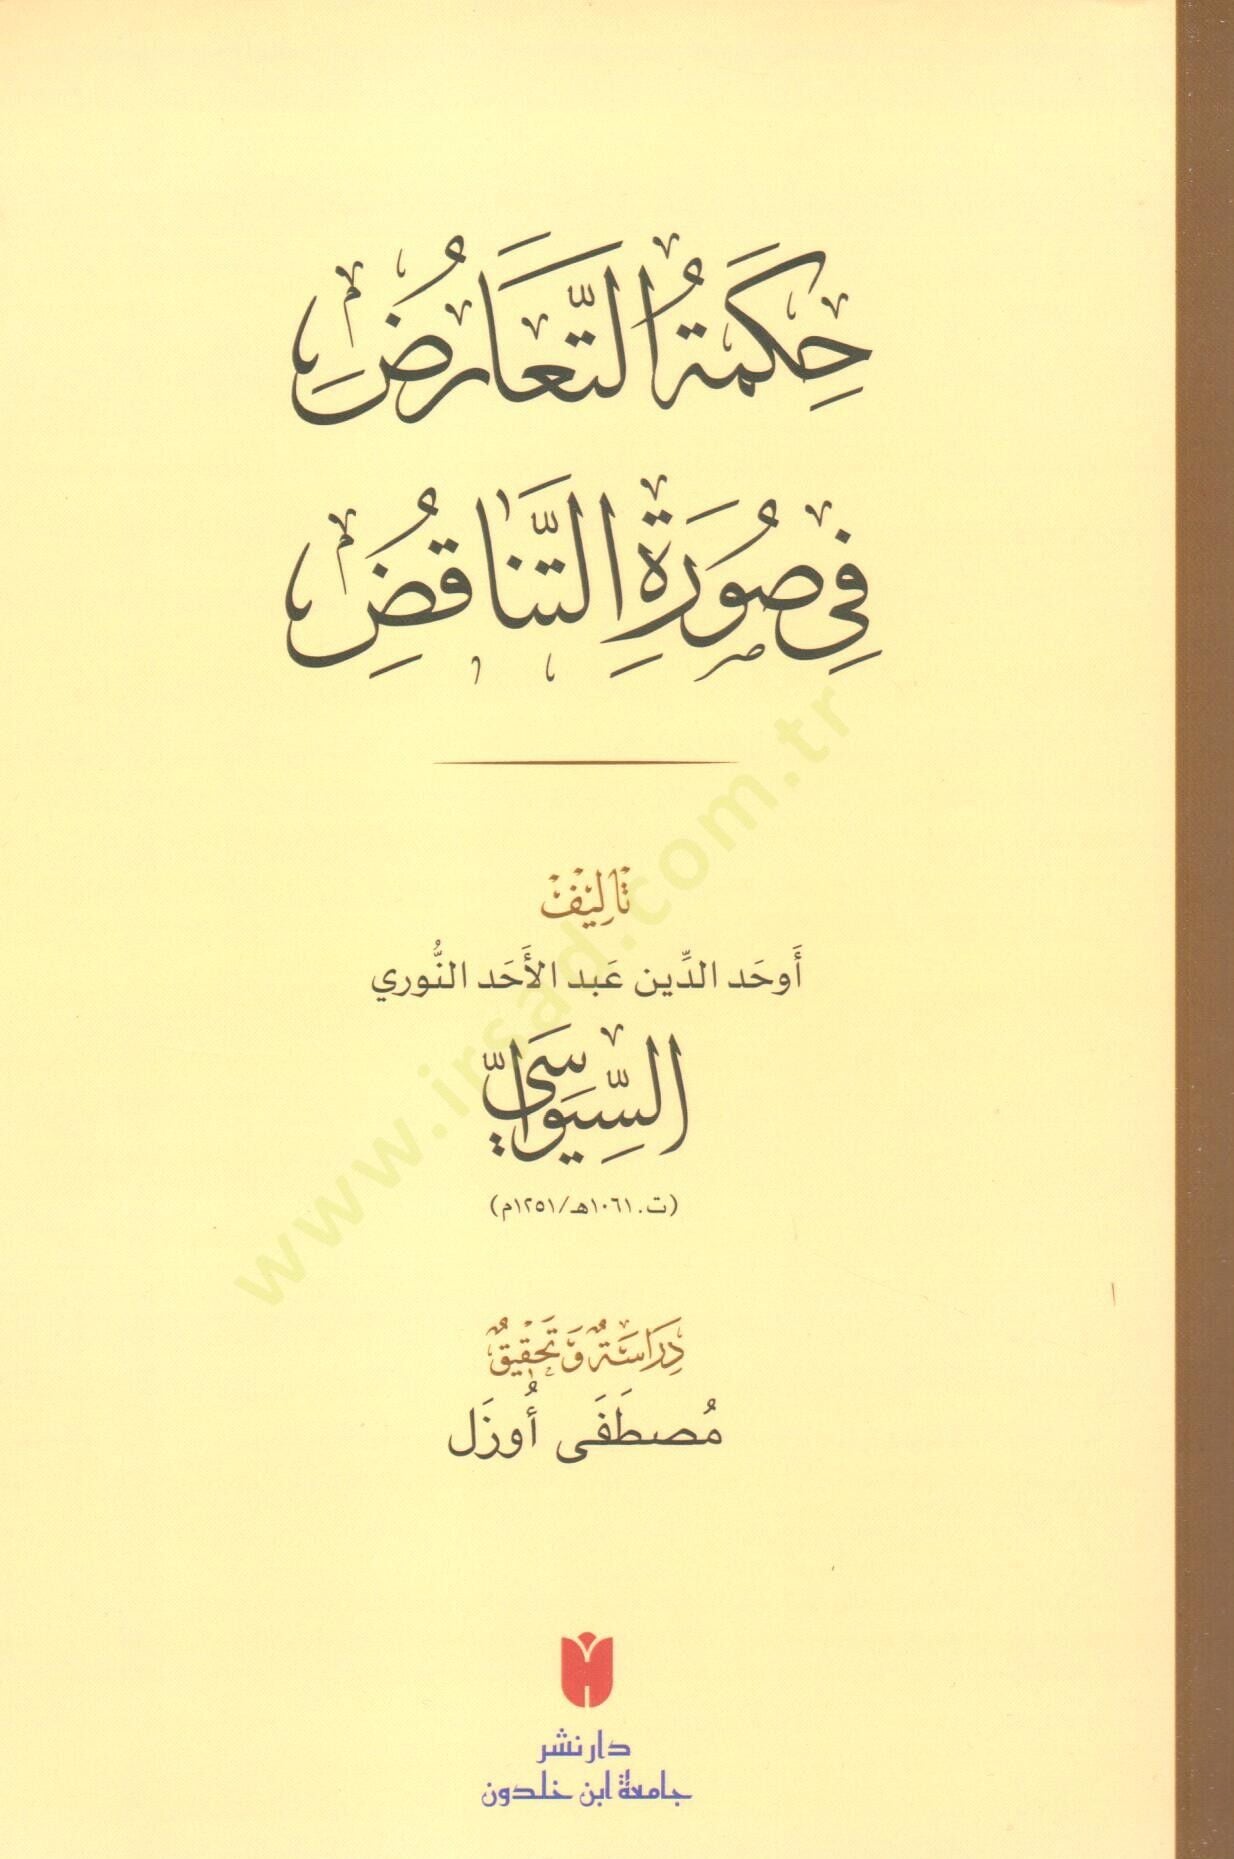 حِكْمَةُ التَّعَارُضِ
فِي صُورَةِ التَّنَاقُضِ
تَأْلِيْفُ
أَوحَد الدِّين عَبد الأَحَد النُّوري
السِّيْوَاسِيِّ
(ت. ١٠٦١هـ/١٢٥١م)
دِرَاسَةٌ وَتَحْقِيْقٌ
مُصطَفَى أُوزَل
دار نشر
جامعة ابن خلدون
www.irsad.com.tr